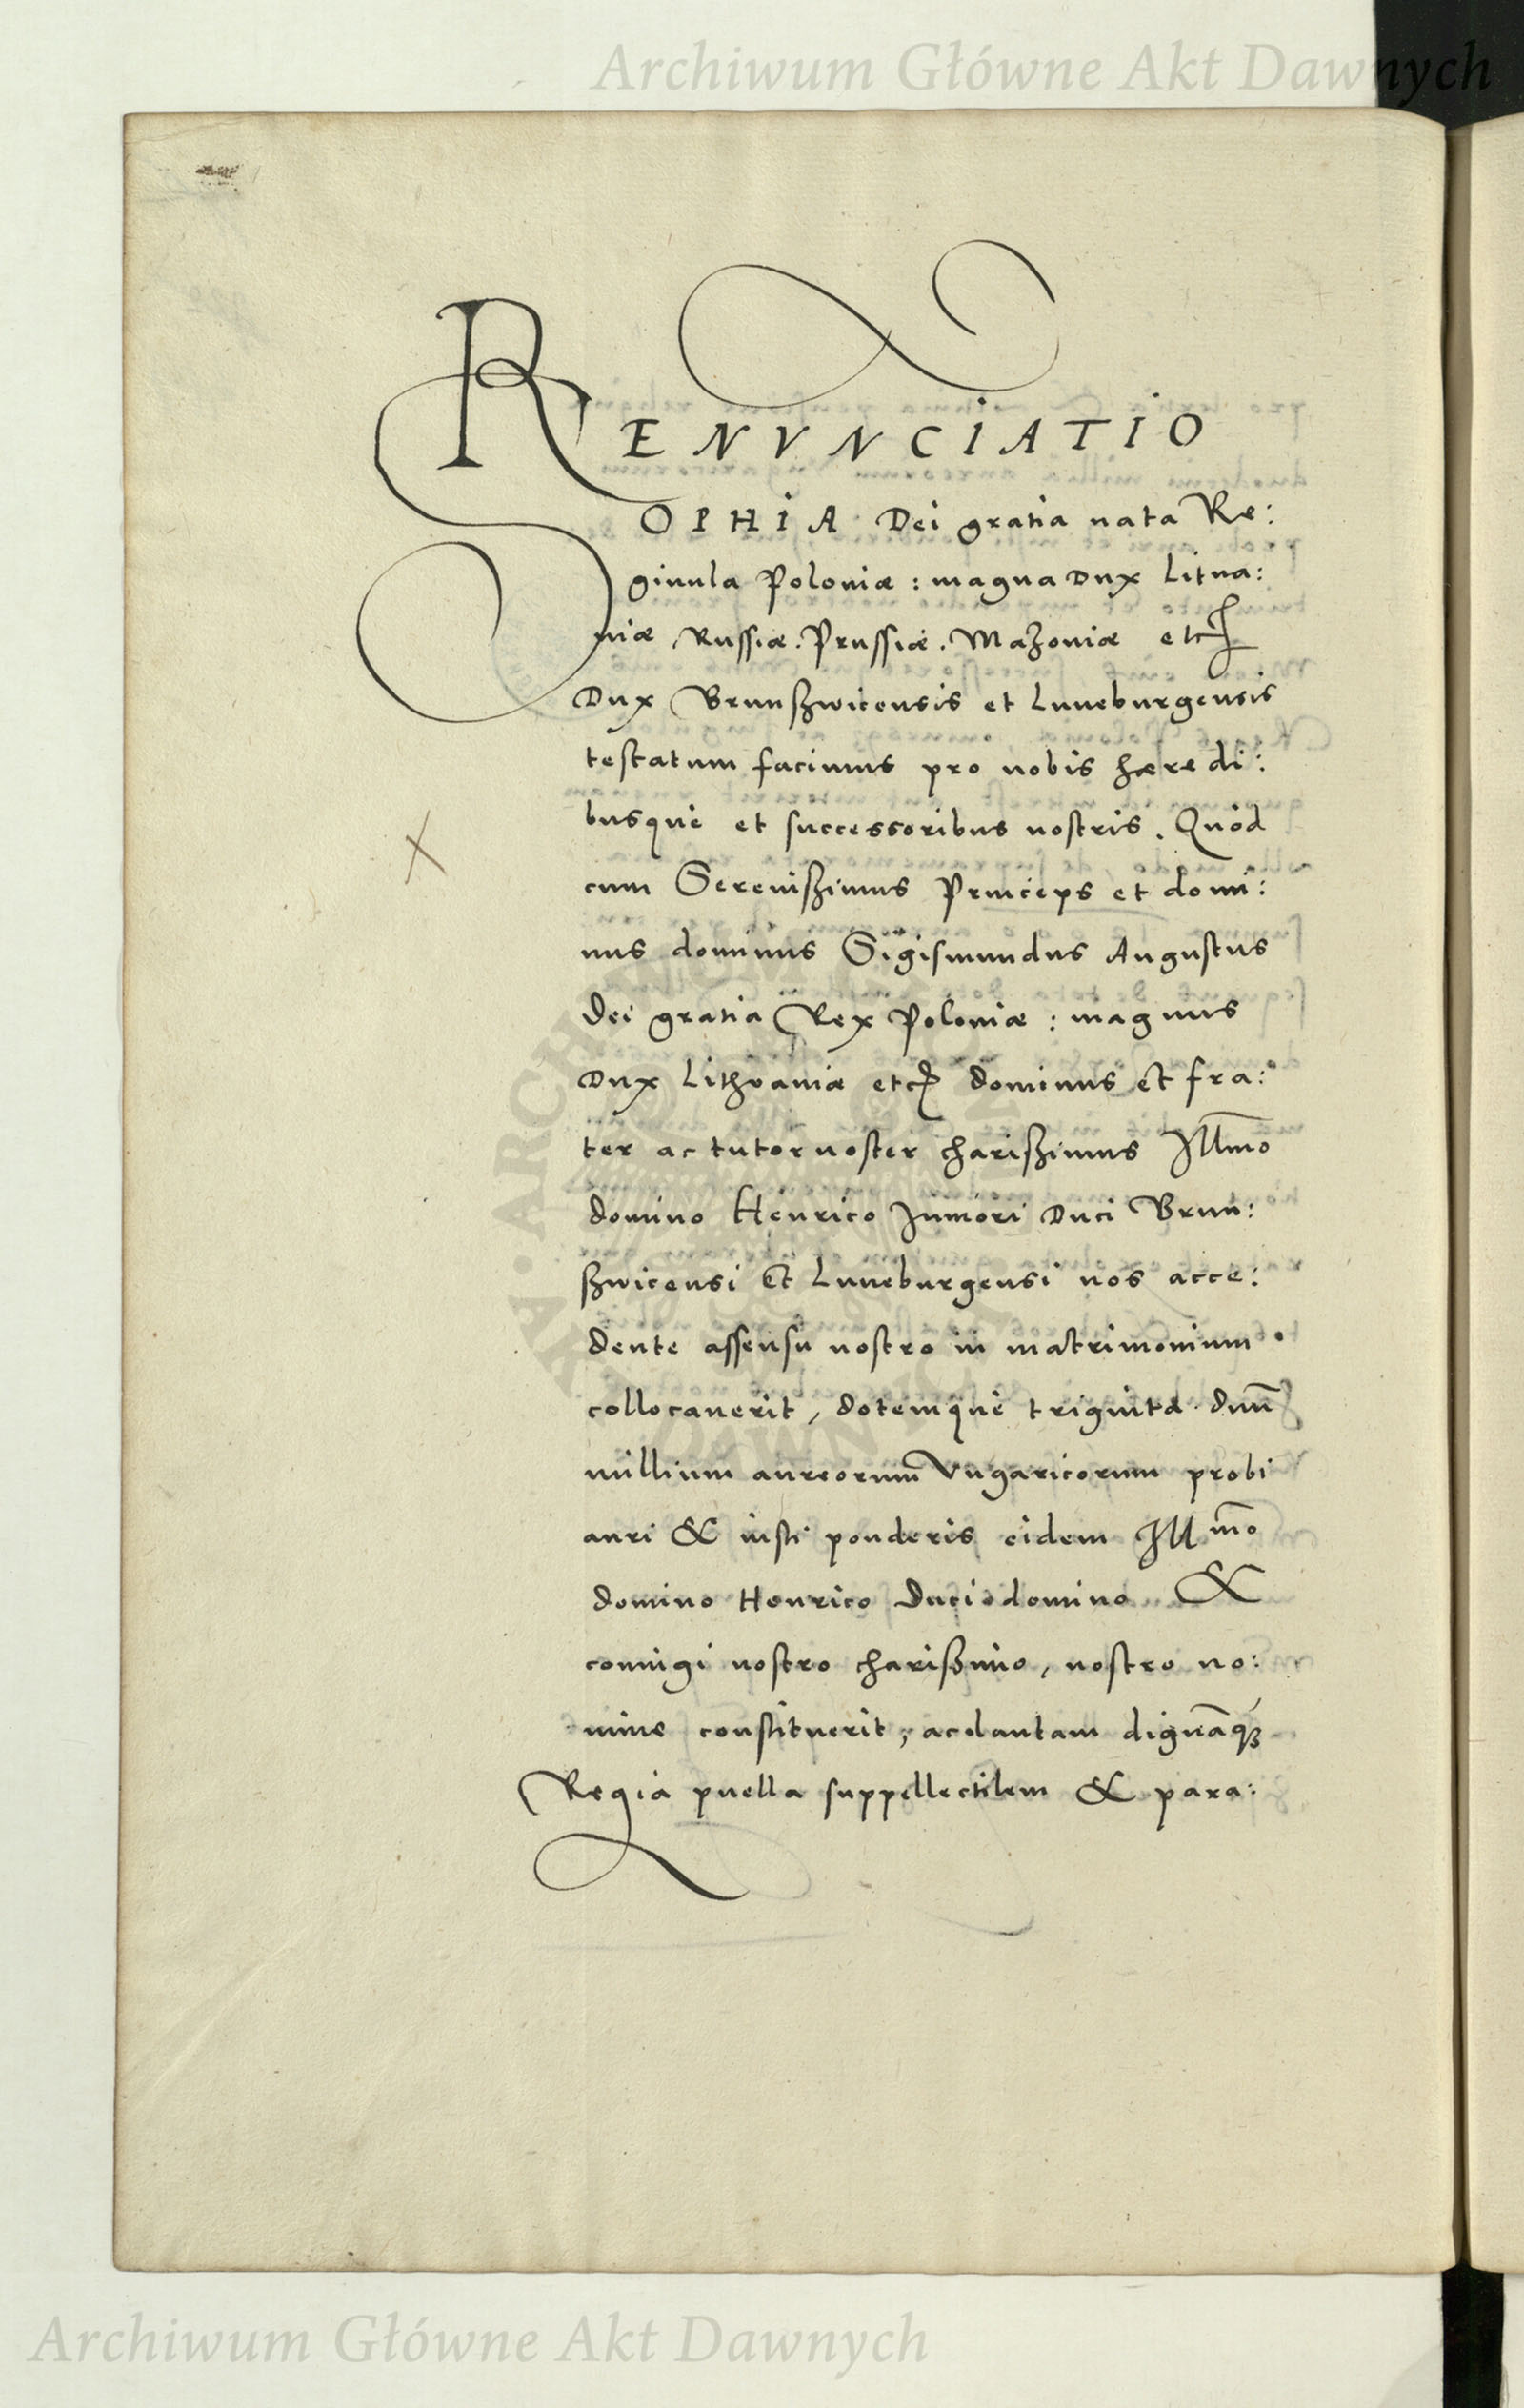 Archiwum Główne Akt Dawnych
RENVNCIATIO
SOPHIA Dei gratia nata Re:
ginula Poloniæ : magna Dux Litua:
niæ, Russiæ. Prussiæ. Mazoniæ etc
Dux Brunßwicensis et Luneburgensis
testatum facimus pro nobis hæredi:
busque et successoribus nostris. Quod
cum Serenißimus Princeps et domi:
nus dominus Sigismundus Augustus
Dei gratia Rex Poloniæ : magnus
Dux Lithvaniæ etc dominus et fra:
ter ac tutor noster charißimus Illmo
domino Henrico Juniori Duci Brun:
ßwicensi Et Luneburgensi nos acce:
dente assensu nostro in matrimonium
collocauerit, dotemque triginta duūm
millium aureorum Vngaricorum probi
auri & iusti ponderis eidem Illmo
domino Henrico Duci domino &
coniugi nostro charißimo, nostro no:
mine constituerit, ac lautam dignāqꝫ
Regia puella suppellectilem & para:
ARCHIWUM AKT DAWNYCH
Archiwum Główne Akt Dawnych